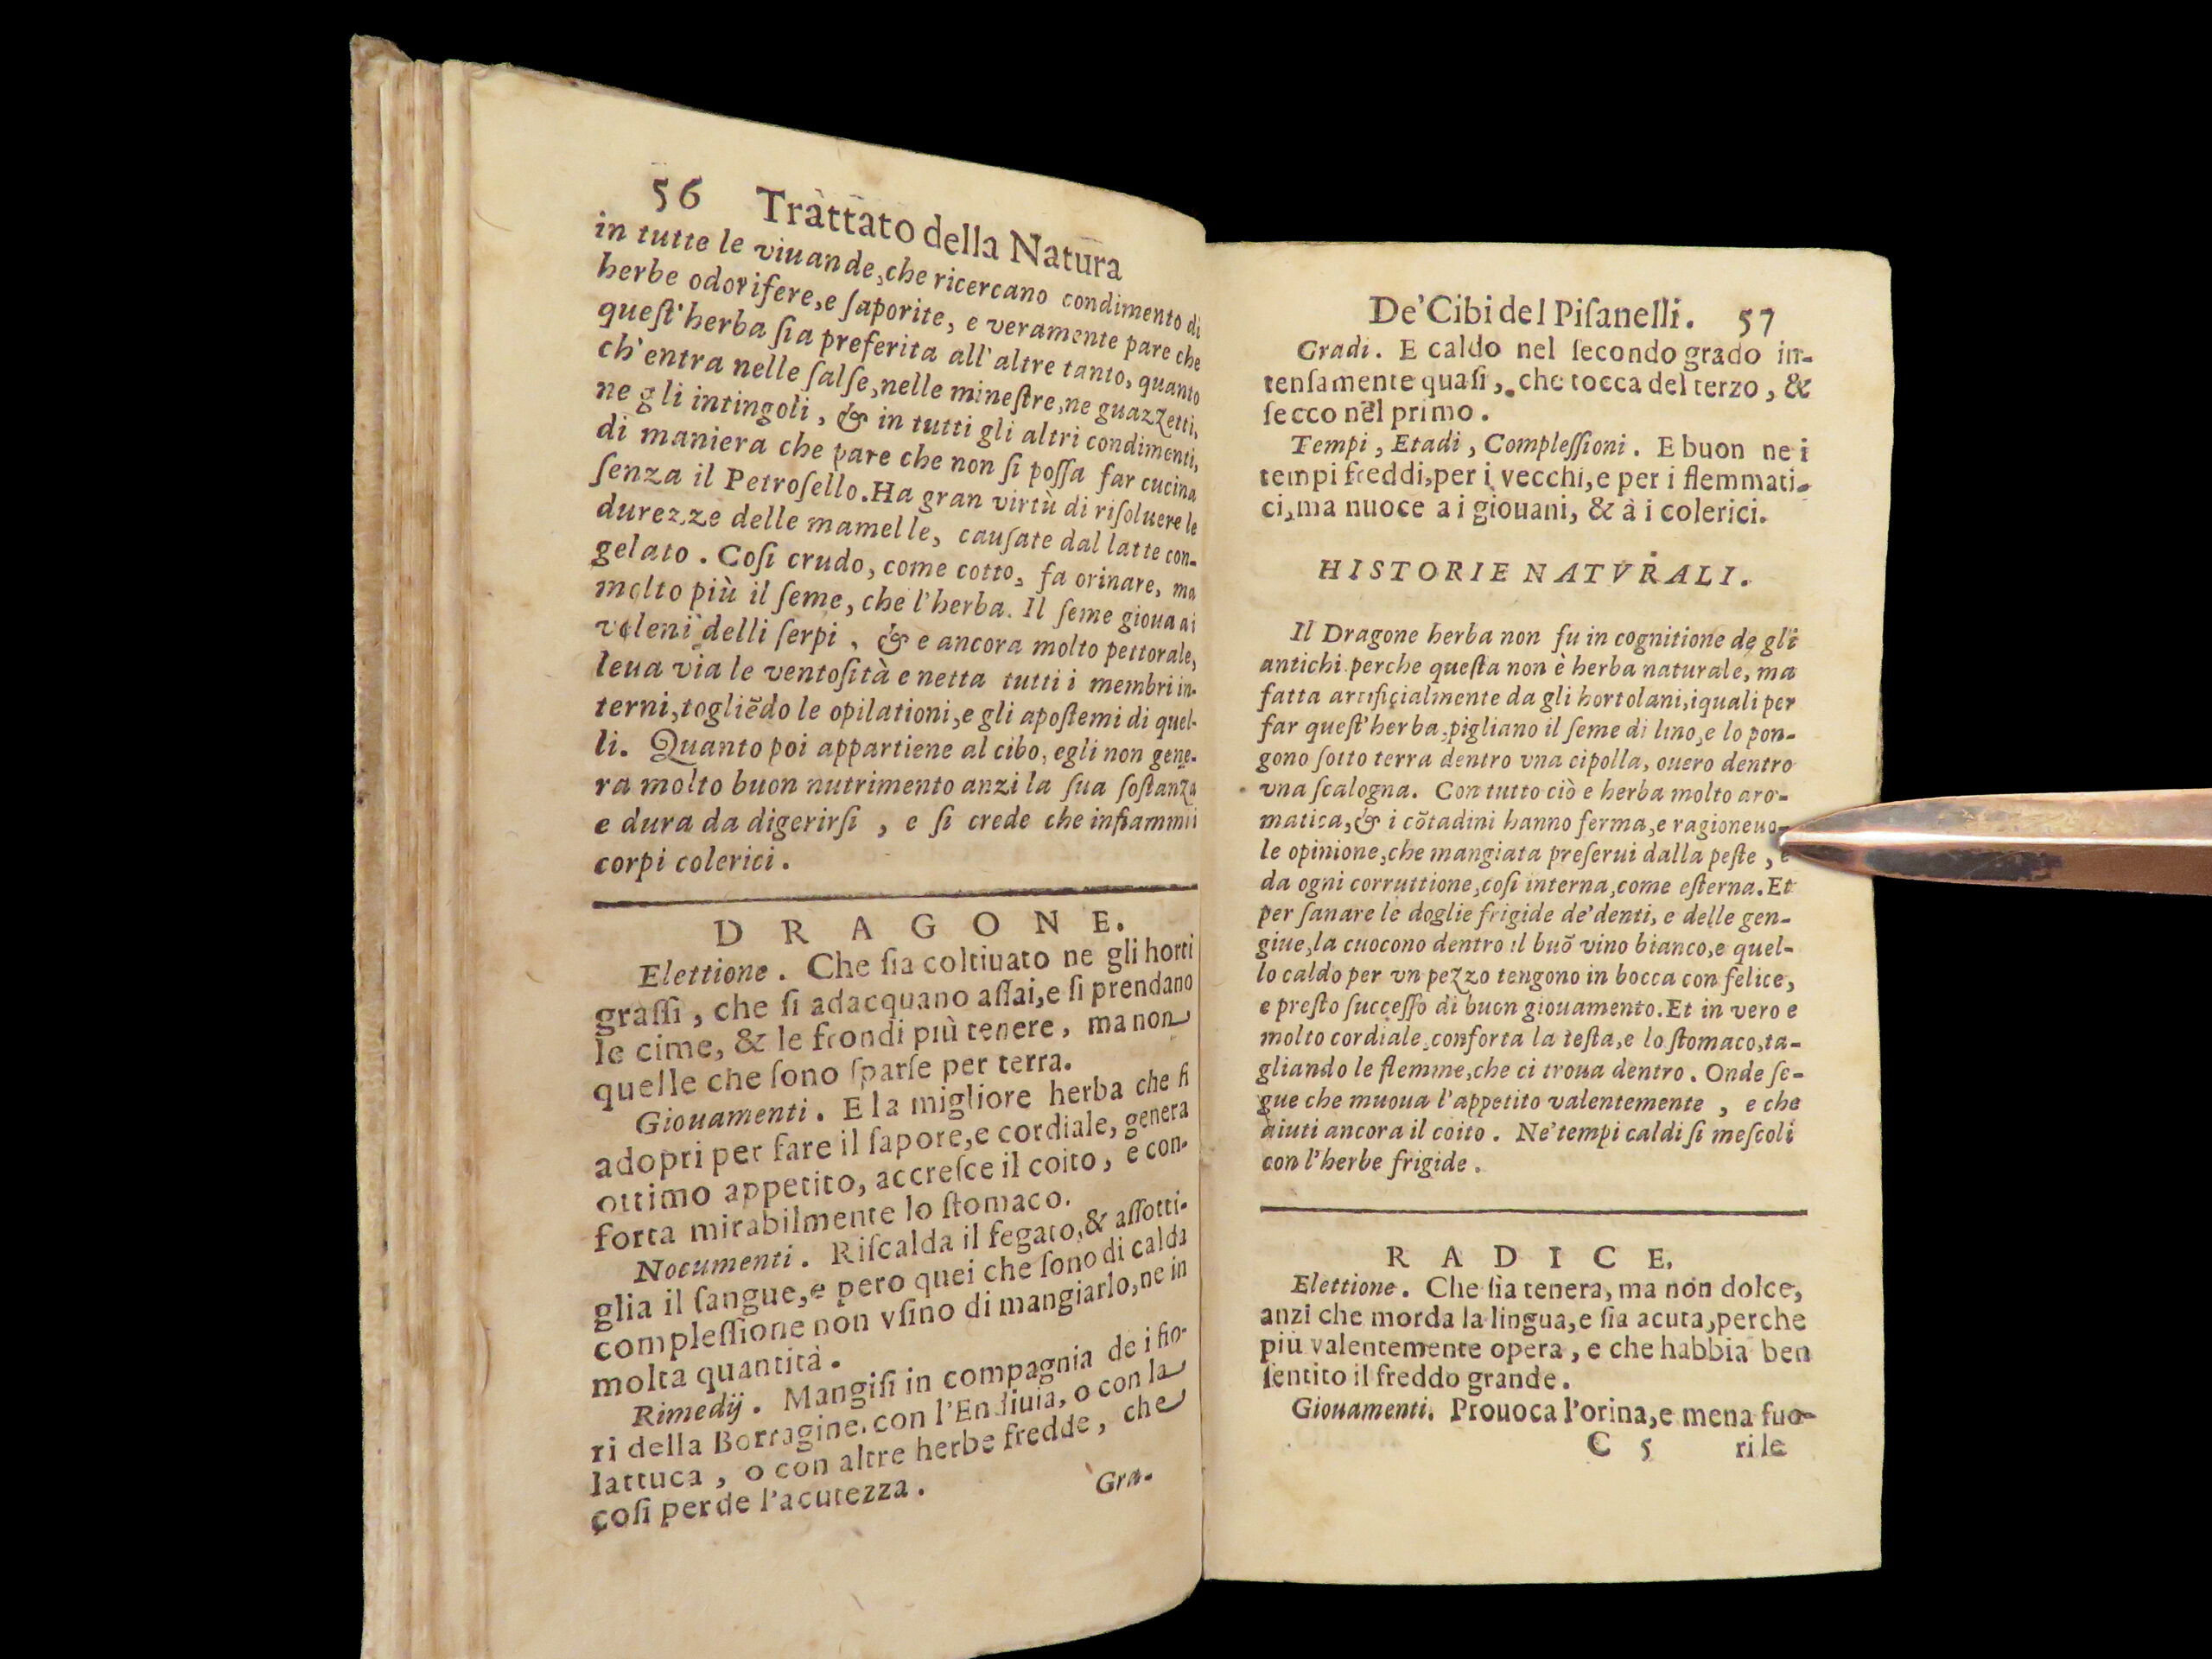 56 Trattato della Natura
in tutte le viuande,che ricercano condimento di
herbe odorifere,e ſaporite, e veramente pare che
queſt'herba ſia preferita all'altre tanto, quanto
ch'entra nelle ſalſe,nelle mineſtre,ne guazzetti,
ne gli intingoli, & in tutti gli altri condimenti,
di maniera che pare che non ſi poſſa far cucina
ſenza il Petroſello.Ha gran virtù di riſoluere le
durezze delle mamelle, cauſate dal latte con-
gelato. Coſi crudo, come cotto, fa orinare, ma
molto più il ſeme, che l'herba. Il ſeme gioua ai
veleni delli ſerpi, & e ancora molto pettorale,
leua via le ventoſità e netta tutti i membri in-
terni,togliēdo le opilationi,e gli apoſtemi di quel-
li. Quanto poi appartiene al cibo, egli non gene-
ra molto buon nutrimento anzi la ſua ſoſtanza
e dura da digerirſi, e ſi crede che infiammi i
corpi colerici.
DRAGONE.
Elettione. Che ſia coltiuato ne gli horti
graſſi, che ſi adacquano aſſai,e ſi prendano
le cime, & le frondi più tenere, ma non
quelle che ſono ſparſe per terra.
Giouamenti. E la migliore herba che ſi
adopri per fare il ſapore,e cordiale, genera
ottimo appetito, accreſce il coito, e con-
forta mirabilmente lo ſtomaco.
Nocumenti. Riſcalda il fegato,& aſſotti-
glia il ſangue,e pero quei che ſono di calda
compleſſione non vſino di mangiarlo,ne in
molta quantità.
Rimedij. Mangiſi in compagnia de i fio-
ri della Borragine, con l'Endiuia, o con la
lattuca, o con altre herbe fredde, che
coſi perde l'acutezza.
Gra-
De'Cibi del Piſanelli. 57
Gradi. E caldo nel ſecondo grado in-
tenſamente quaſi, che tocca del terzo, &
ſecco nel primo.
Tempi, Etadi, Compleſſioni. E buon ne i
tempi freddi,per i vecchi,e per i flemmati-
ci,ma nuoce a i giouani, & à i colerici.
HISTORIE NATVRALI.
Il Dragone herba non fu in cognitione de gli
antichi perche queſta non è herba naturale, ma
fatta artificialmente da gli hortolani,iquali per
far queſt'herba,pigliano il ſeme di lino,e lo pon-
gono ſotto terra dentro vna cipolla, ouero dentro
vna ſcalogna. Con tutto ciò e herba molto aro-
matica,& i cōtadini hanno ferma,e ragioneuo-
le opinione,che mangiata preſerui dalla peſte, e
da ogni corruttione,coſi interna,come eſterna.Et
per ſanare le doglie frigide de'denti, e delle gen-
giue,la cuocono dentro il buō vino bianco,e quel-
lo caldo per vn pezzo tengono in bocca con felice,
e preſto ſucceſſo di buon giouamento.Et in vero e
molto cordiale,conforta la teſta,e lo ſtomaco,ta-
gliando le flemme,che ci troua dentro. Onde ſe-
gue che muoua l'appetito valentemente, e che
aiuti ancora il coito. Ne'tempi caldi ſi meſcoli
con l'herbe frigide.
RADICE.
Elettione. Che ſia tenera, ma non dolce,
anzi che morda la lingua,e ſia acuta,perche
più valentemente opera, e che habbia ben
ſentito il freddo grande.
Giouamenti. Prouoca l'orina,e mena fuo-
C 5 ri le